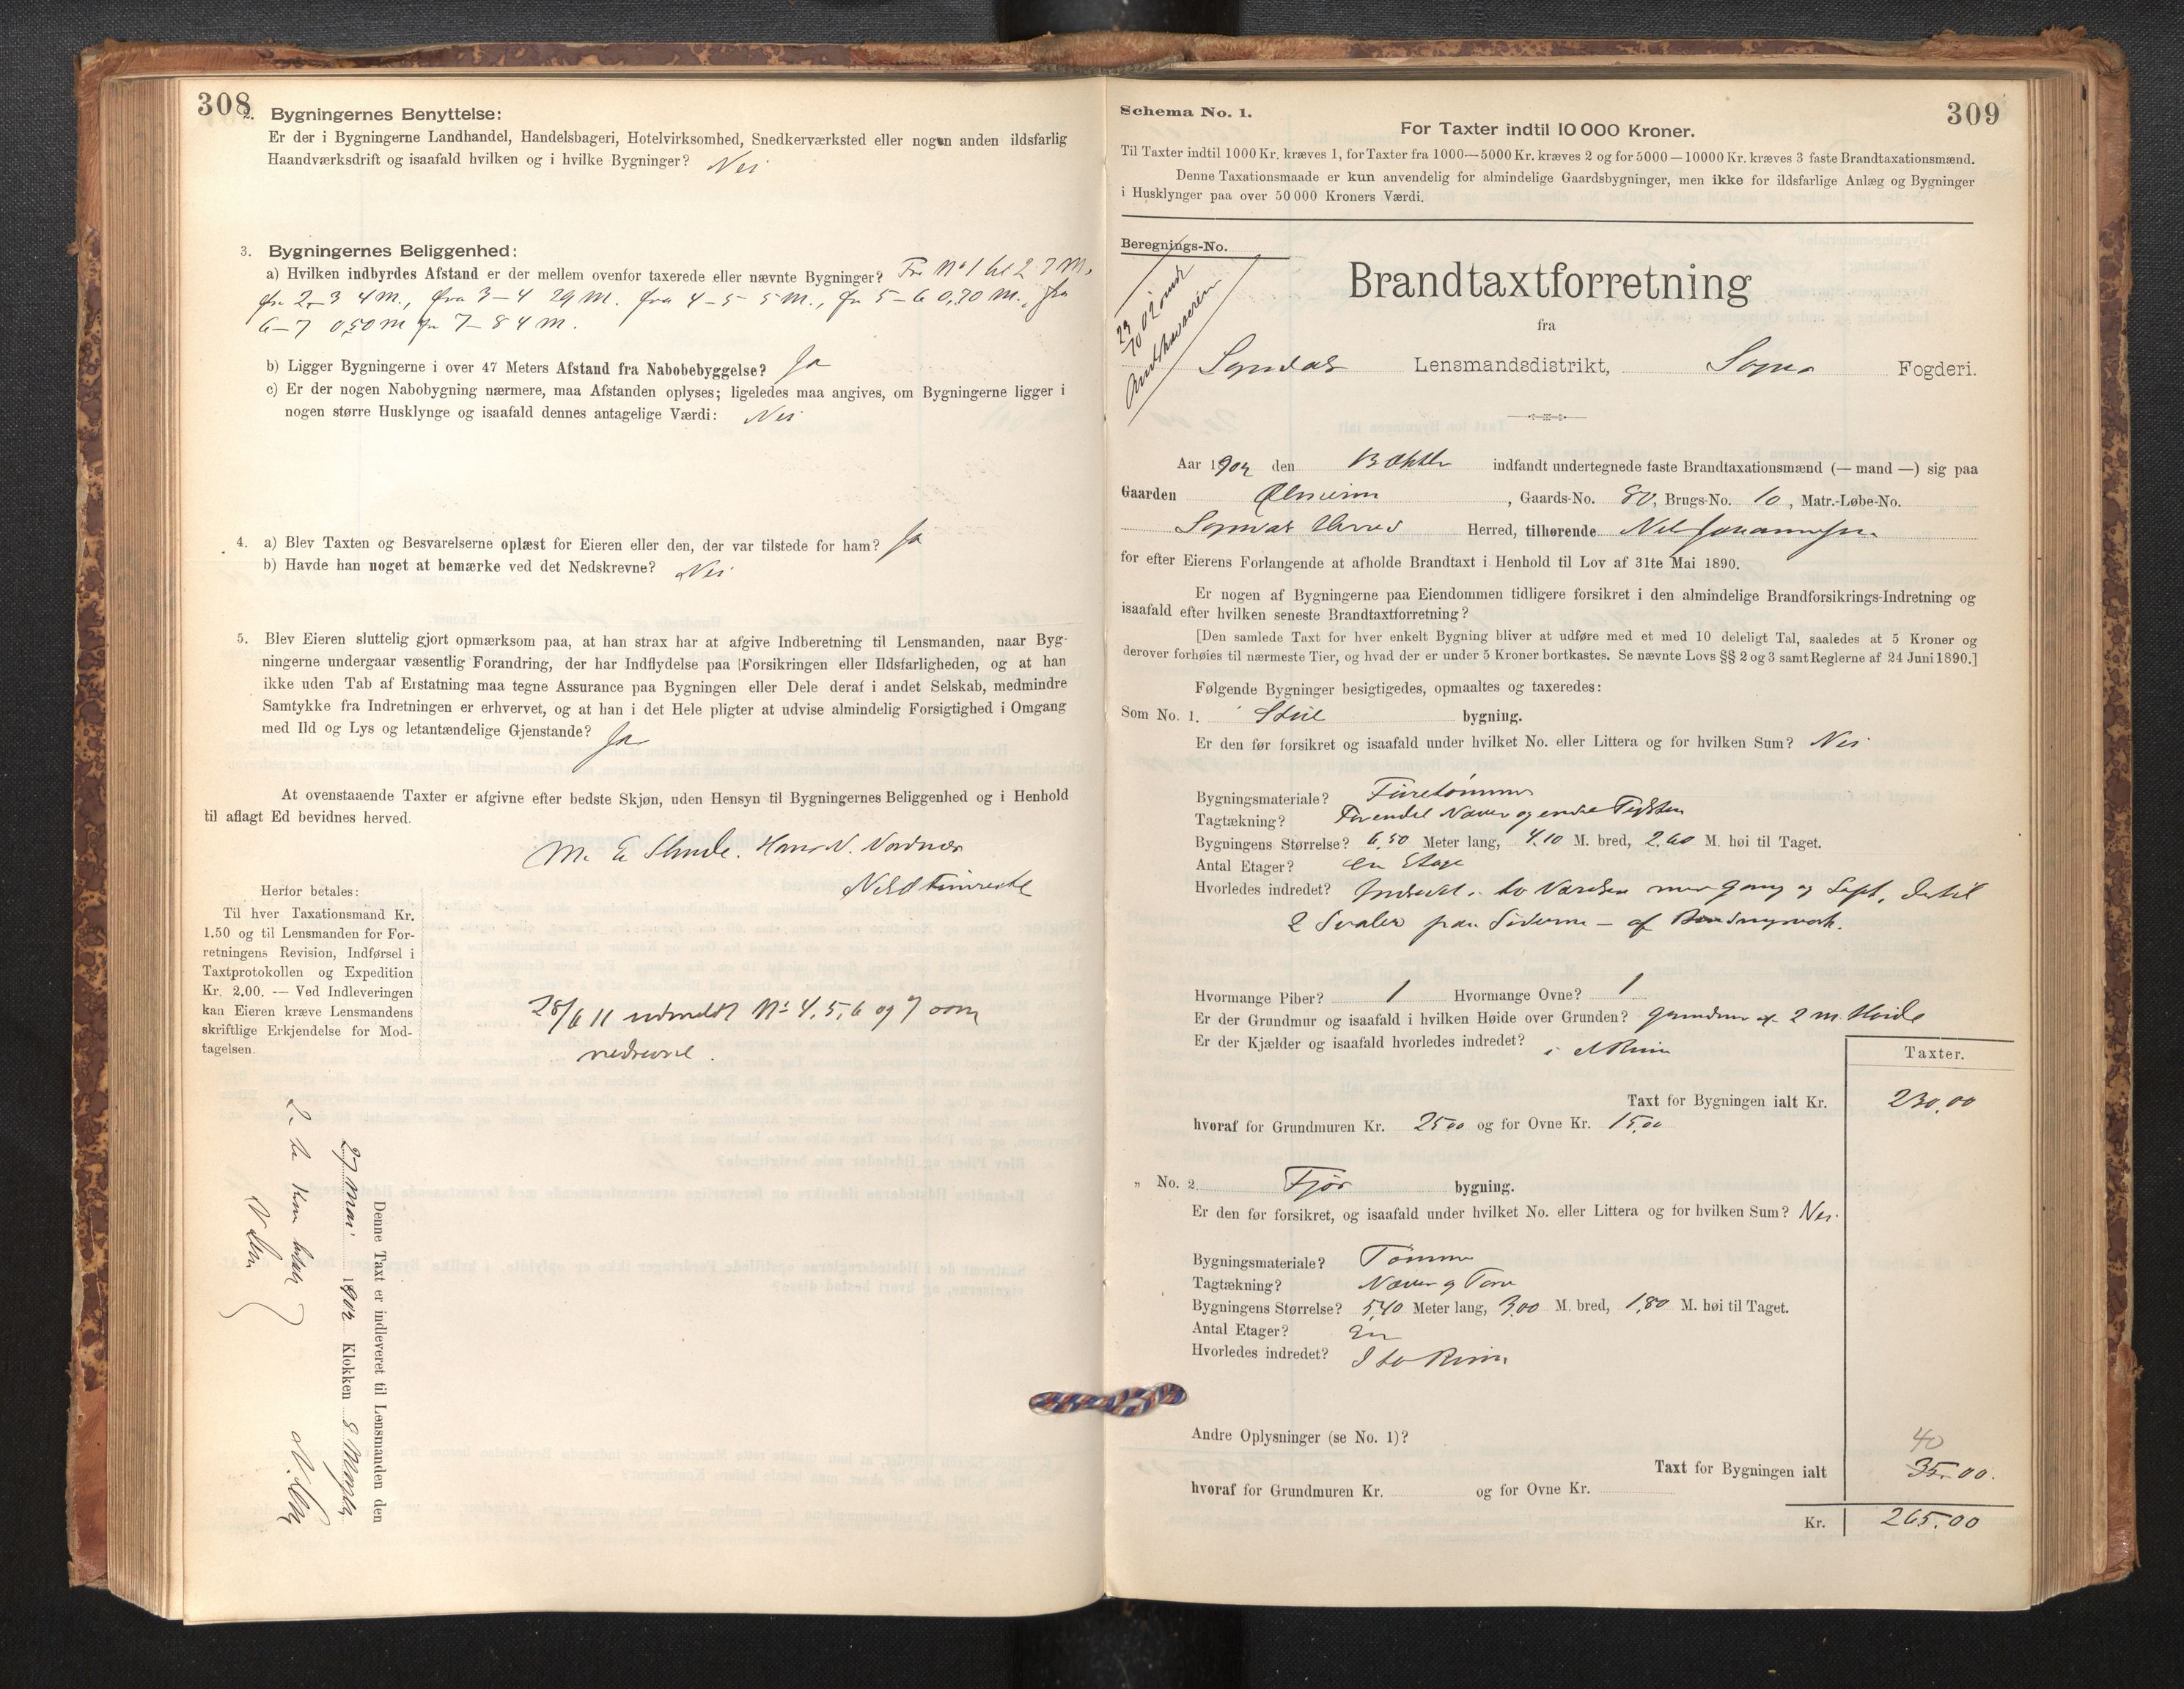 308
2. Bygningernes Benyttelse:
Er der i Bygningerne Landhandel, Handelsbageri, Hotelvirksomhed, Snedkerværksted eller nogen anden ildsfarlig
Haandværksdrift og isaafald hvilken og i hvilke Bygninger? Nei
3. Bygningernes Beliggenhed:
a) Hvilken indbyrdes Afstand er der mellem ovenfor taxerede eller nævnte Bygninger? Fra No 1 til 2 7 M.,
fra 2–3 4 M., fra 3–4 29 M. fra 4–5 5 M., fra 5–6 0,70 M., fra
6–7 0,50 M fra 7–8 4 M.
b) Ligger Bygningerne i over 47 Meters Afstand fra Nabobebyggelse? Ja
c) Er der nogen Nabobygning nærmere, maa Afstanden oplyses; ligeledes maa angives, om Bygningerne ligger i
nogen større Husklynge og isaafald dennes antagelige Værdi: Nei
4. a) Blev Taxten og Besvarelserne oplæst for Eieren eller den, der var tilstede for ham? Ja
b) Havde han noget at bemærke ved det Nedskrevne? Nei
5. Blev Eieren sluttelig gjort opmærksom paa, at han strax har at afgive Indberetning til Lensmanden, naar Byg-
ningerne undergaar væsentlig Forandring, der har Indflydelse paa Forsikringen eller Ildsfarligheden, og at han
ikke uden Tab af Erstatning maa tegne Assurance paa Bygningen eller Dele deraf i andet Selskab, medmindre
Samtykke fra Indretningen er erhvervet, og at han i det Hele pligter at udvise almindelig Forsigtighed i Omgang
med Ild og Lys og letantændelige Gjenstande? Ja
At ovenstaaende Taxter er afgivne efter bedste Skjøn, uden Hensyn til Bygningernes Beliggenhed og i Henhold
til aflagt Ed bevidnes herved.
M. E. Hans N.
Herfor betales:
Til hver Taxationsmand Kr.
1.50 og til Lensmanden for For-
retningens Revision, Indførsel i
Taxtprotokollen og Expedition
Kr. 2.00. — Ved Indleveringen
kan Eieren kræve Lensmandens
skriftlige Erkjendelse for Mod-
tagelsen.
28/6 11 udmeldt No 4, 5, 6 og 7 som
nedrevne.
Denne Taxt er indleveret til Lensmanden den
27 Mai 1902 Klokken 8
2
309
Schema No. 1.
For Taxter indtil 10 000 Kroner.
Til Taxter indtil 1000 Kr. kræves 1, for Taxter fra 1000—5000 Kr. kræves 2 og for 5000—10000 Kr. kræves 3 faste Brandtaxationsmænd.
Denne Taxationsmaade er kun anvendelig for almindelige Gaardsbygninger, men ikke for ildsfarlige Anlæg og Bygninger
i Husklynger paa over 50 000 Kroners Værdi.
Beregnings-No.
Brandtaxtforretning
fra
Sogndal Lensmandsdistrikt, Sogns Fogderi.
Aar 1902 den indfandt undertegnede faste Brandtaxationsmænd (— mand —) sig paa
Gaarden Ølmeim, Gaards-No. 80, Brugs-No. 10, Matr.-Løbe-No.
Sogndal Herred Herred, tilhørende Nils Johannessen
for efter Eierens Forlangende at afholde Brandtaxt i Henhold til Lov af 31te Mai 1890.
Er nogen af Bygningerne paa Eiendommen tidligere forsikret i den almindelige Brandforsikrings-Indretning og
isaafald efter hvilken seneste Brandtaxtforretning?
[Den samlede Taxt for hver enkelt Bygning bliver at udføre med et med 10 deleligt Tal, saaledes at 5 Kroner og
derover forhøies til nærmeste Tier, og hvad der er under 5 Kroner bortkastes. Se nævnte Lovs §§ 2 og 3 samt Reglerne af 24 Juni 1890.]
Følgende Bygninger besigtigedes, opmaaltes og taxeredes:
Som No. 1. bygning.
Er den før forsikret og isaafald under hvilket No. eller Littera og for hvilken Sum? Nei
Bygningsmateriale? Furetømmer
Tagtækning? Næver og
Bygningens Størrelse? 6,50 Meter lang, 4.10 M. bred, 2.60 M. høi til Taget.
Antal Etager? en Etage
Hvorledes indredet? Indredet to Værelser med Gang og Loft, dertil
2 Svaler paa Siderne – af
Hvormange Piber? 1 Hvormange Ovne? 1
Er der Grundmur og isaafald i hvilken Høide over Grunden? Grundmur af 2 m. Høide
Er der Kjælder og isaafald hvorledes indredet? i
Taxter.
Taxt for Bygningen ialt Kr. 230,00
hvoraf for Grundmuren Kr. 25 00 og for Ovne Kr. 15,00
„ No. 2. Fjøs bygning.
Er den før forsikret, og isaafald under hvilket No. eller Littera og for hvilken Sum? Nei.
Bygningsmateriale? Tømmer
Tagtækning? Næver og Torv
Bygningens Størrelse? 5,40 Meter lang, 3,00 M. bred, 1,80 M. høi til Taget.
Antal Etager? En
Hvorledes indredet? I to Rum
Andre Oplysninger (se No. 1)?
40
Taxt for Bygningen ialt 35.00.
hvoraf for Grundmuren Kr. og for Ovne Kr.
Kr. 265.00